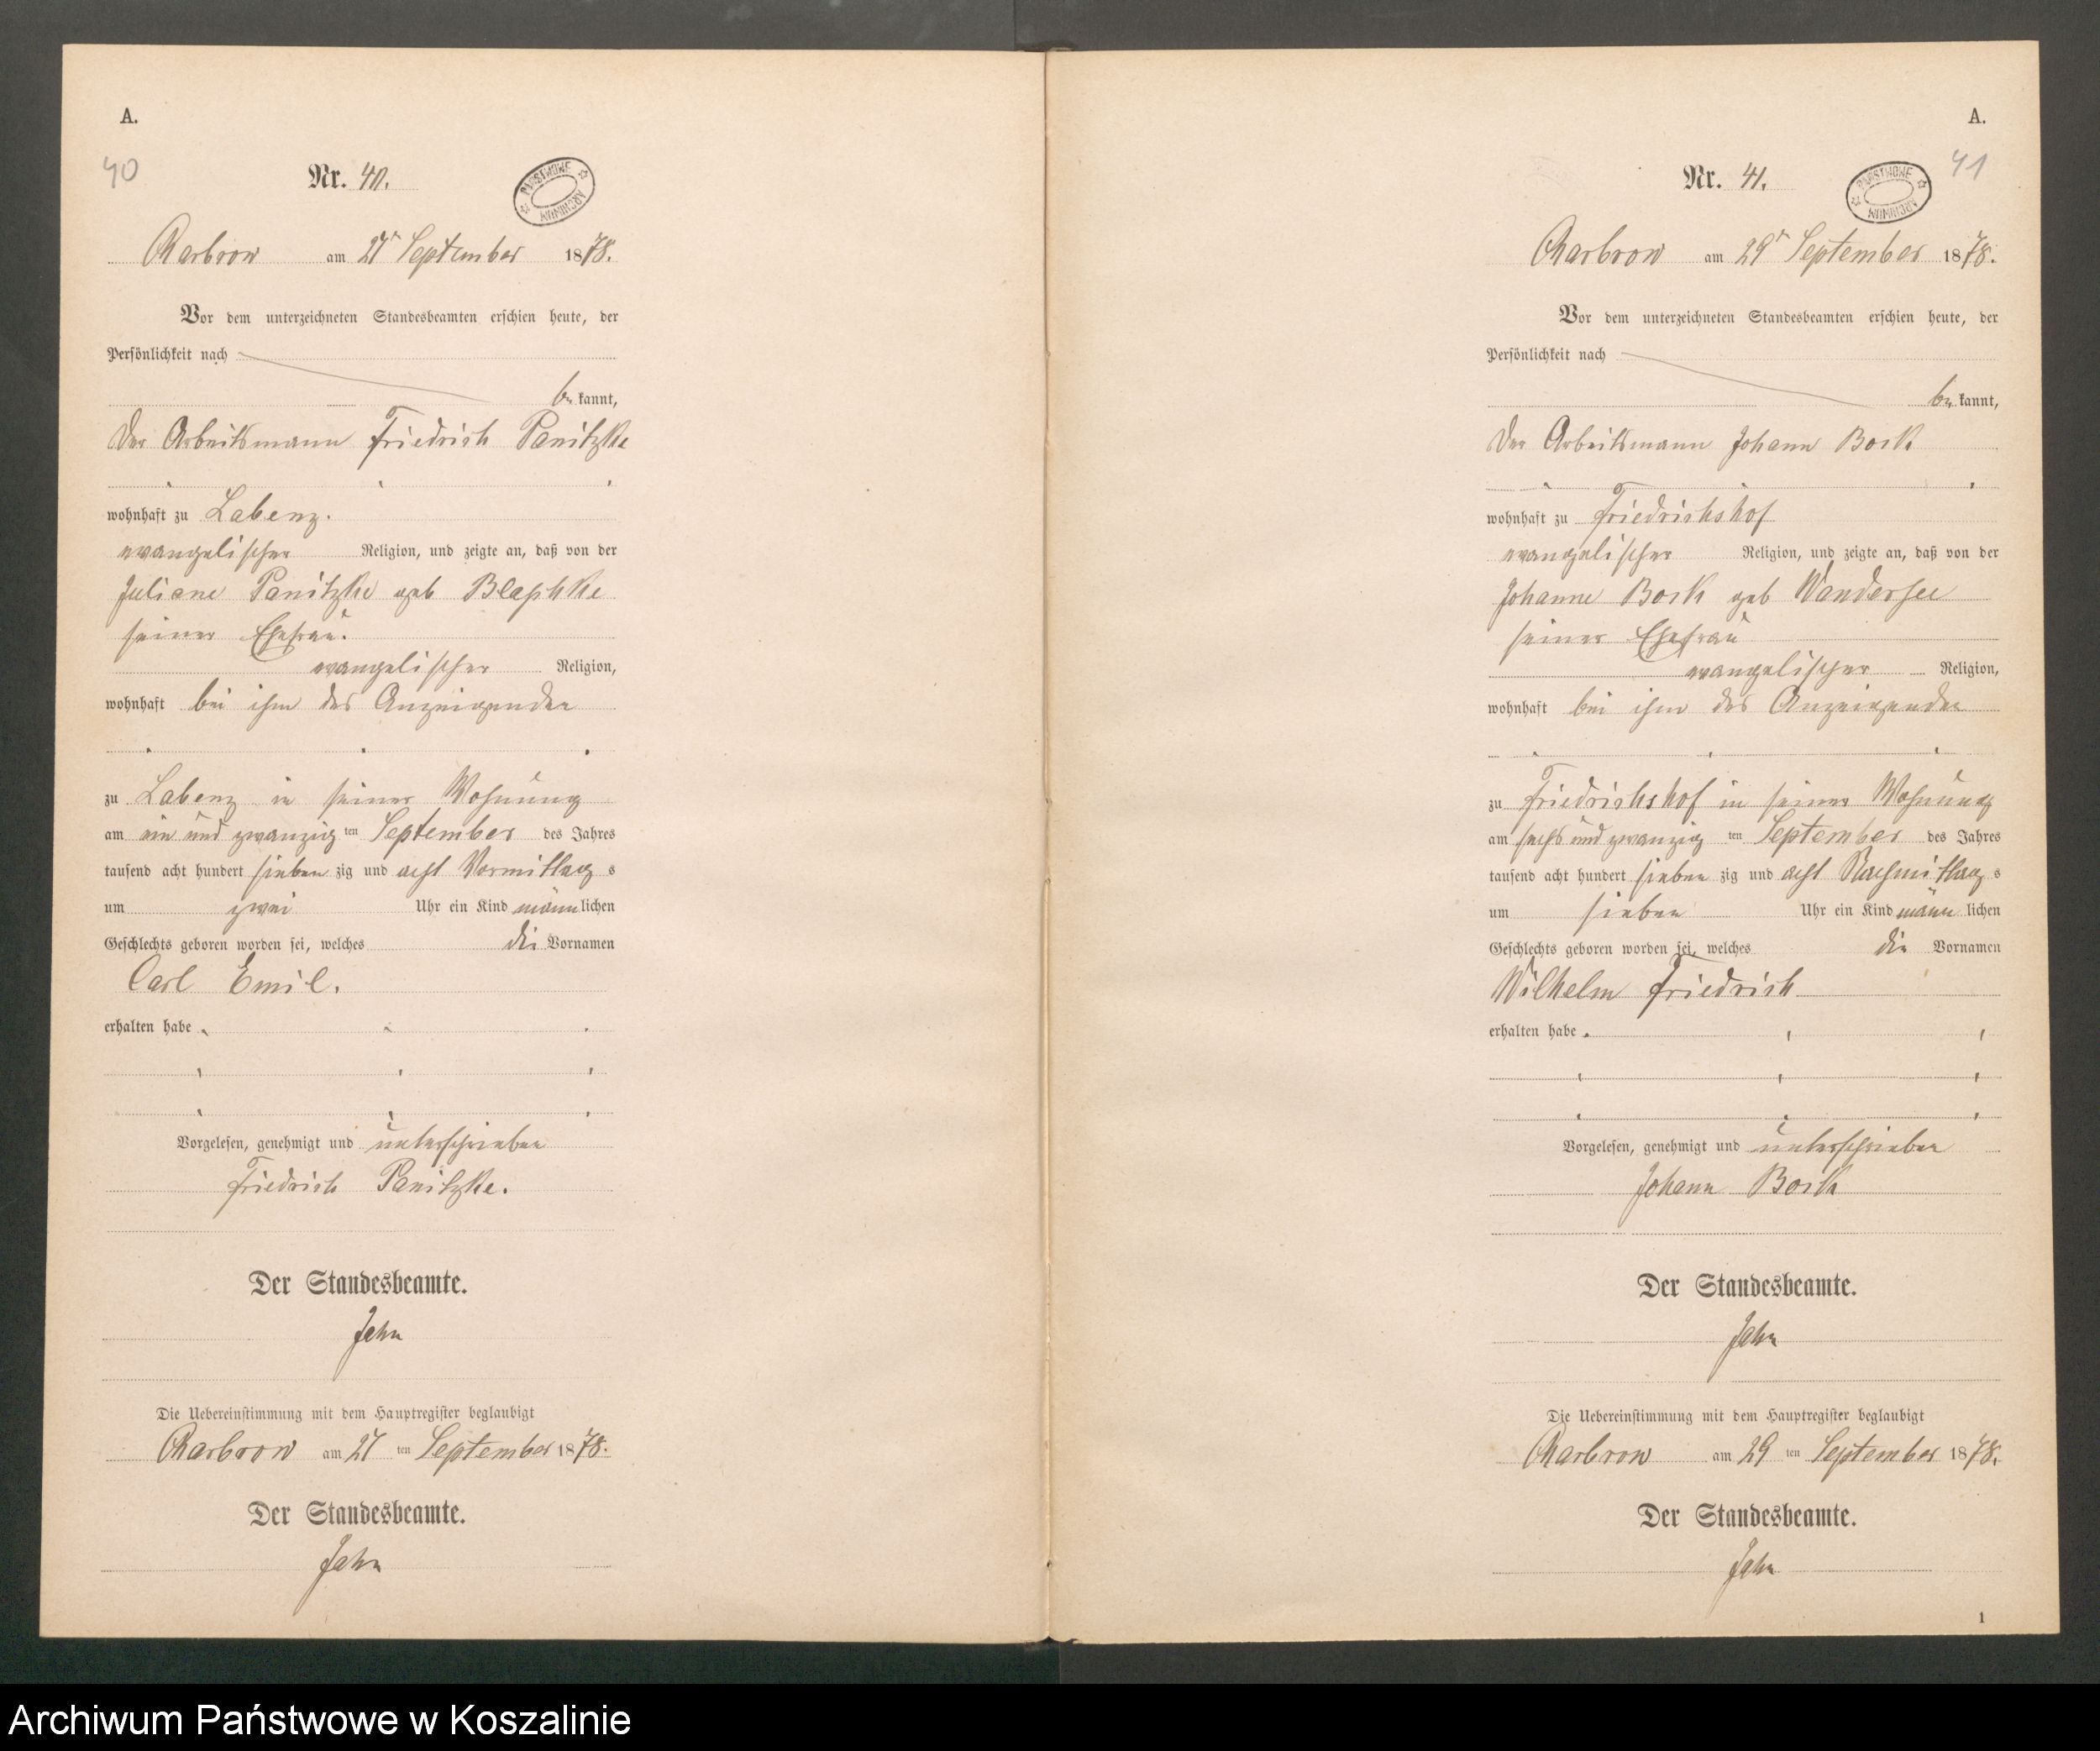 A.
40
Nr. 40.
PAŃSTWOWE ARCHIWUM
Charbrow am 27n September 1878.
Vor dem unterzeichneten Standesbeamten erschien heute, der
Persönlichkeit nach
be kannt,
der Arbeitsmann Friedrich Panitzke
wohnhaft zu Labenz.
evangelischer Religion, und zeigte an, daß von der
Juliane Panitzke geb
seiner Ehefrau.
evangelischer Religion,
wohnhaft bei ihm des Anzeigenden
zu Labenz in seiner Wohnung
am ein und zwanzig ten September des Jahres
tausend acht hundert sieben zig und acht Vormittag s
um zwei Uhr ein Kind männ lichen
Geschlechts geboren worden sei, welches die Vornamen
Carl Emil.
erhalten habe
Vorgelesen, genehmigt und unterschrieben
Friedrich Panitzke.
Der Standesbeamte.
Jahn
Die Uebereinstimmung mit dem Hauptregister beglaubigt
Charbrow am 27 ten September 1878.
Der Standesbeamte.
Jahn
A.
41
Nr. 41.
PAŃSTWOWE ARCHIWUM
Charbrow am 29n September 1878.
Vor dem unterzeichneten Standesbeamten erschien heute, der
Persönlichkeit nach
be kannt,
der Arbeitsmann Johann Bork
wohnhaft zu Friedrichshof
evangelischer Religion, und zeigte an, daß von der
Johanne Bork geb Wandersee
seiner Ehefrau
evangelischer Religion,
wohnhaft bei ihm des Anzeigenden
zu Friedrichshof in seiner Wohnung
am sechs und zwanzig ten September des Jahres
tausend acht hundert sieben zig und acht Nachmittag s
um sieben Uhr ein Kind männ lichen
Geschlechts geboren worden sei, welches die Vornamen
Wilhelm Friedrich
erhalten habe
Vorgelesen, genehmigt und unterschrieben
Johann Bork
Der Standesbeamte.
Jahn
Die Uebereinstimmung mit dem Hauptregister beglaubigt
Charbrow am 29 ten September 1878.
Der Standesbeamte.
Jahn
1
Archiwum Państwowe w Koszalinie